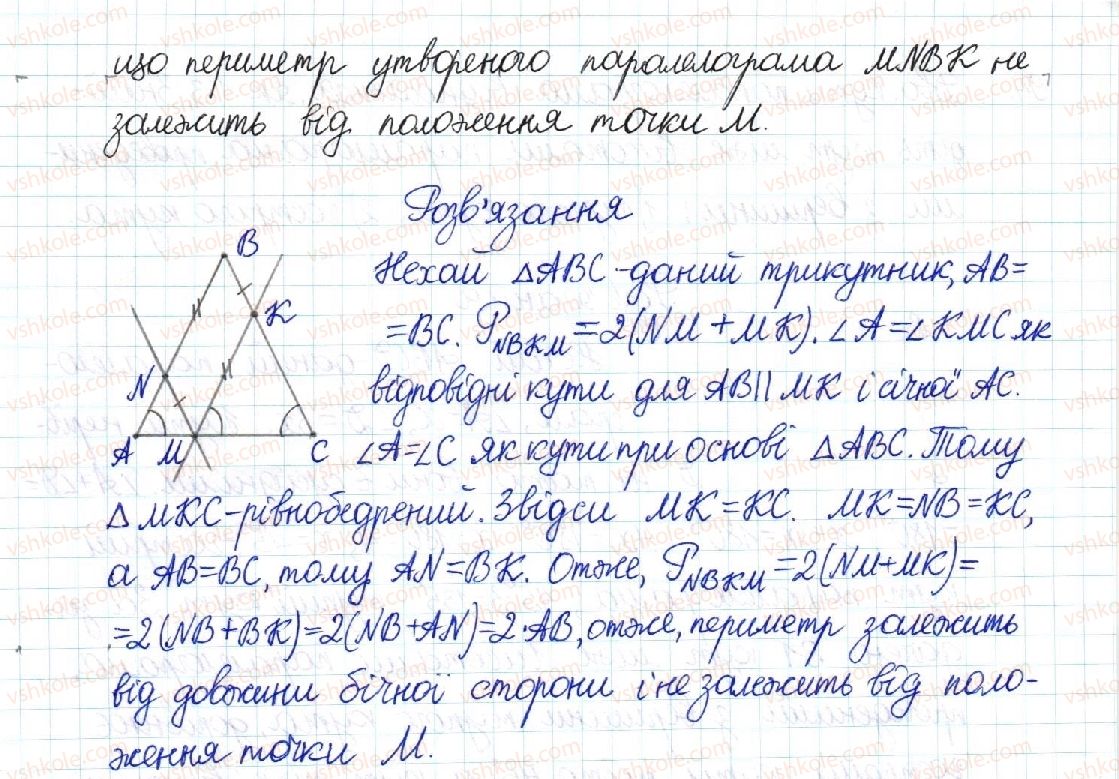 що периметр утвореного паралелограма MNBK не
залежить від положення точки M.
Розв'язання
B
K
N
A M C
Нехай △ABC-даний трикутник, AB=
=BC. P_NBKM=2(NM+MK). ∠A=∠KMC як
відповідні кути для AB||MK і січної AC.
∠A=∠C як кути при основі △ABC. Тому
△MKC-рівнобедрений. Звідси MK=KC. MK=NB=KC,
а AB=BC, тому AN=BK. Отже, P_NBKM=2(NM+MK)=
=2(NB+BK)=2(NB+AN)=2·AB, отже, периметр залежить
від довжини бічної сторони і не залежить від поло-
ження точки M.